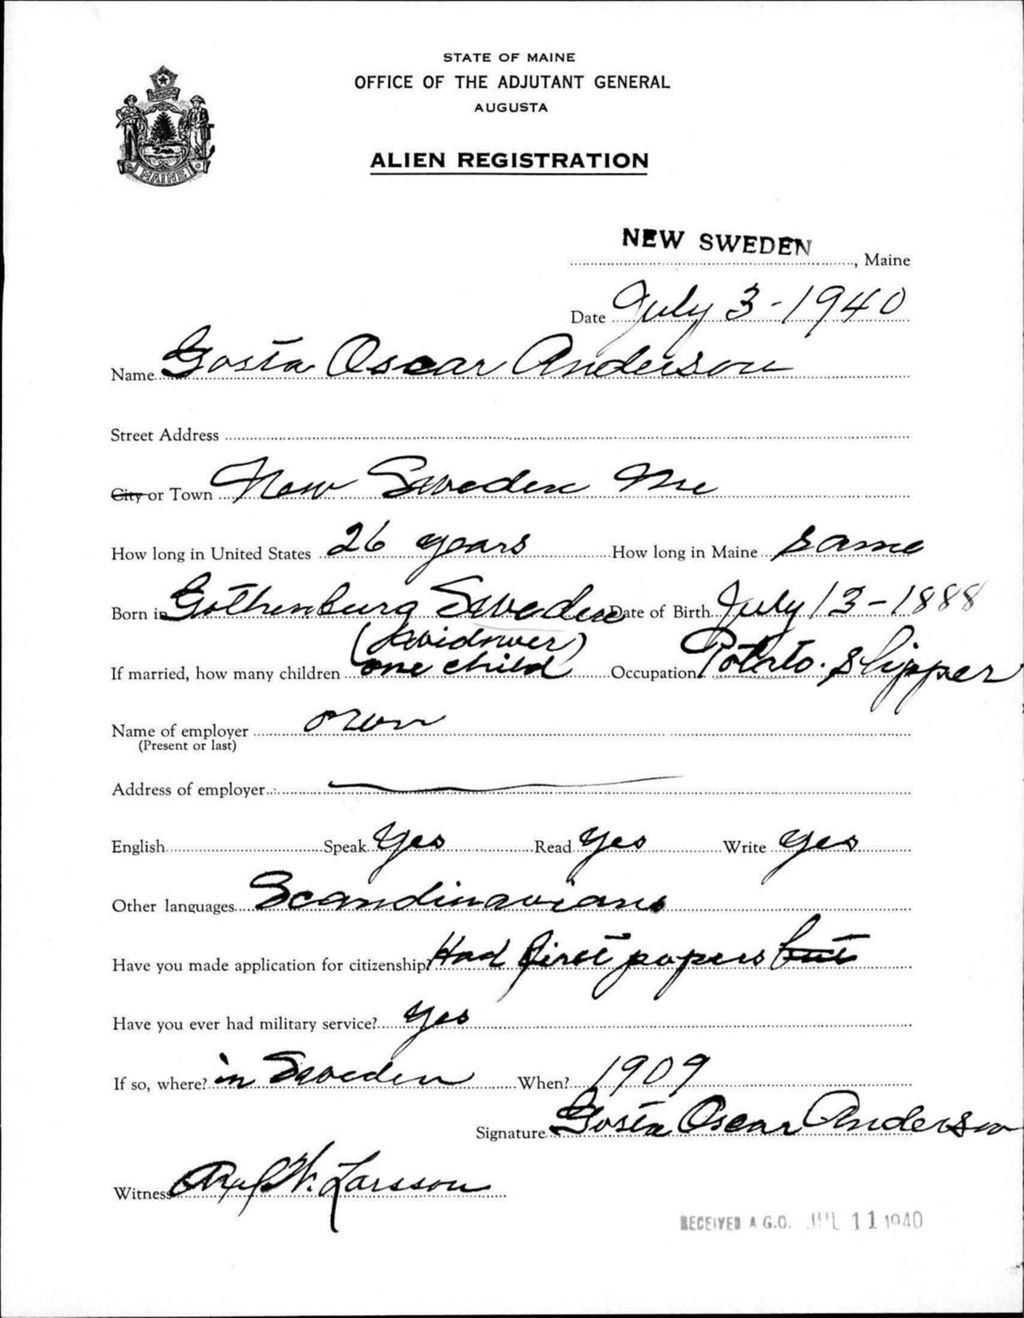 STATE OF MAINE
OFFICE OF THE ADJUTANT GENERAL
AUGUSTA
MAINE
ALIEN REGISTRATION
NEW SWEDEN, Maine
Date July 3-1940
Name Gosta Oscar Anderson
Street Address
City or Town New Sweden Me
How long in United States 26 years How long in Maine same
Born in Gothenburg Sweden Date of Birth July 13-1888
(Widower)
If married, how many children one child Occupation Potato. Shipper
Name of employer own
(Present or last)
Address of employer
English Speak Yes Read Yes Write Yes
Other languages Scandinavians
Have you made application for citizenship? Had first papers but
Have you ever had military service? Yes
If so, where? in Sweden When? 1909
Signature Gosta Oscar Anderson
Witness Axel W. Larsson
RECEIVED A.G.O. JUL 11 1940